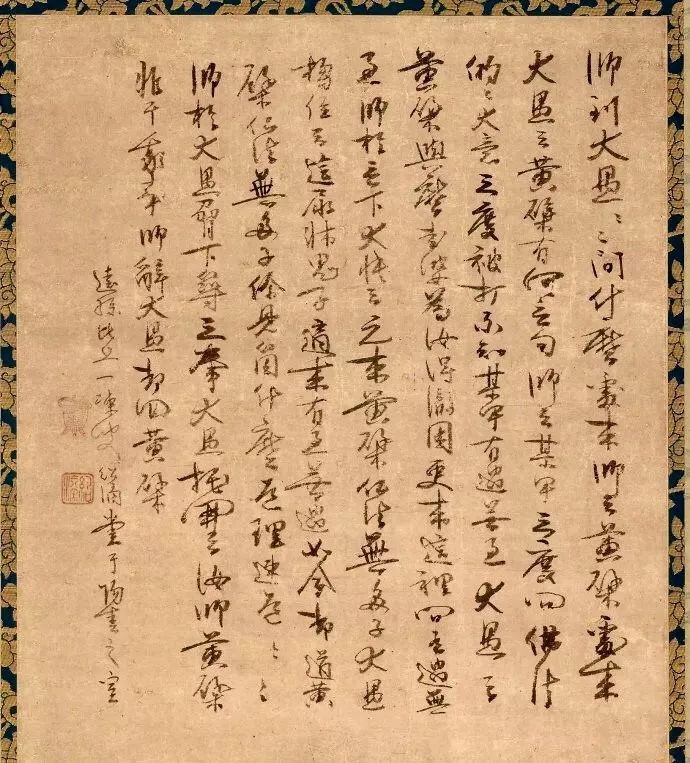 師到大愚〻〻問什麼處来師云黄檗處来
大愚云黄檗有何言句師云某甲三度問佛法
的〻大意三度被打不知某甲有過無過大愚云
黄檗與麼老婆為汝得徹困更来這裡問有過無
過師於言下大悟云元来黄檗佛法無多子大愚
搊住云這尿牀鬼子適来有過無過如今却道黄
檗佛法無多子你見箇什麼道理速道〻〻
師於大愚脅下築三拳大愚托開云汝師黄檗
非干我事師辞大愚却回黄檗
遠孫比丘一凍叟紹滴書于陽春之室